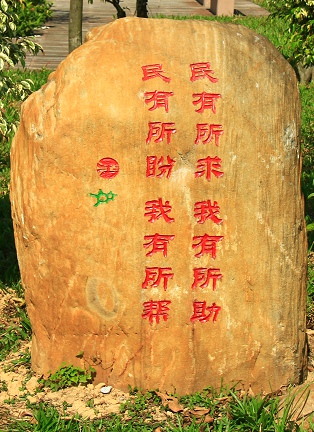 民有所求我有所助
民有所盼我有所帮
江